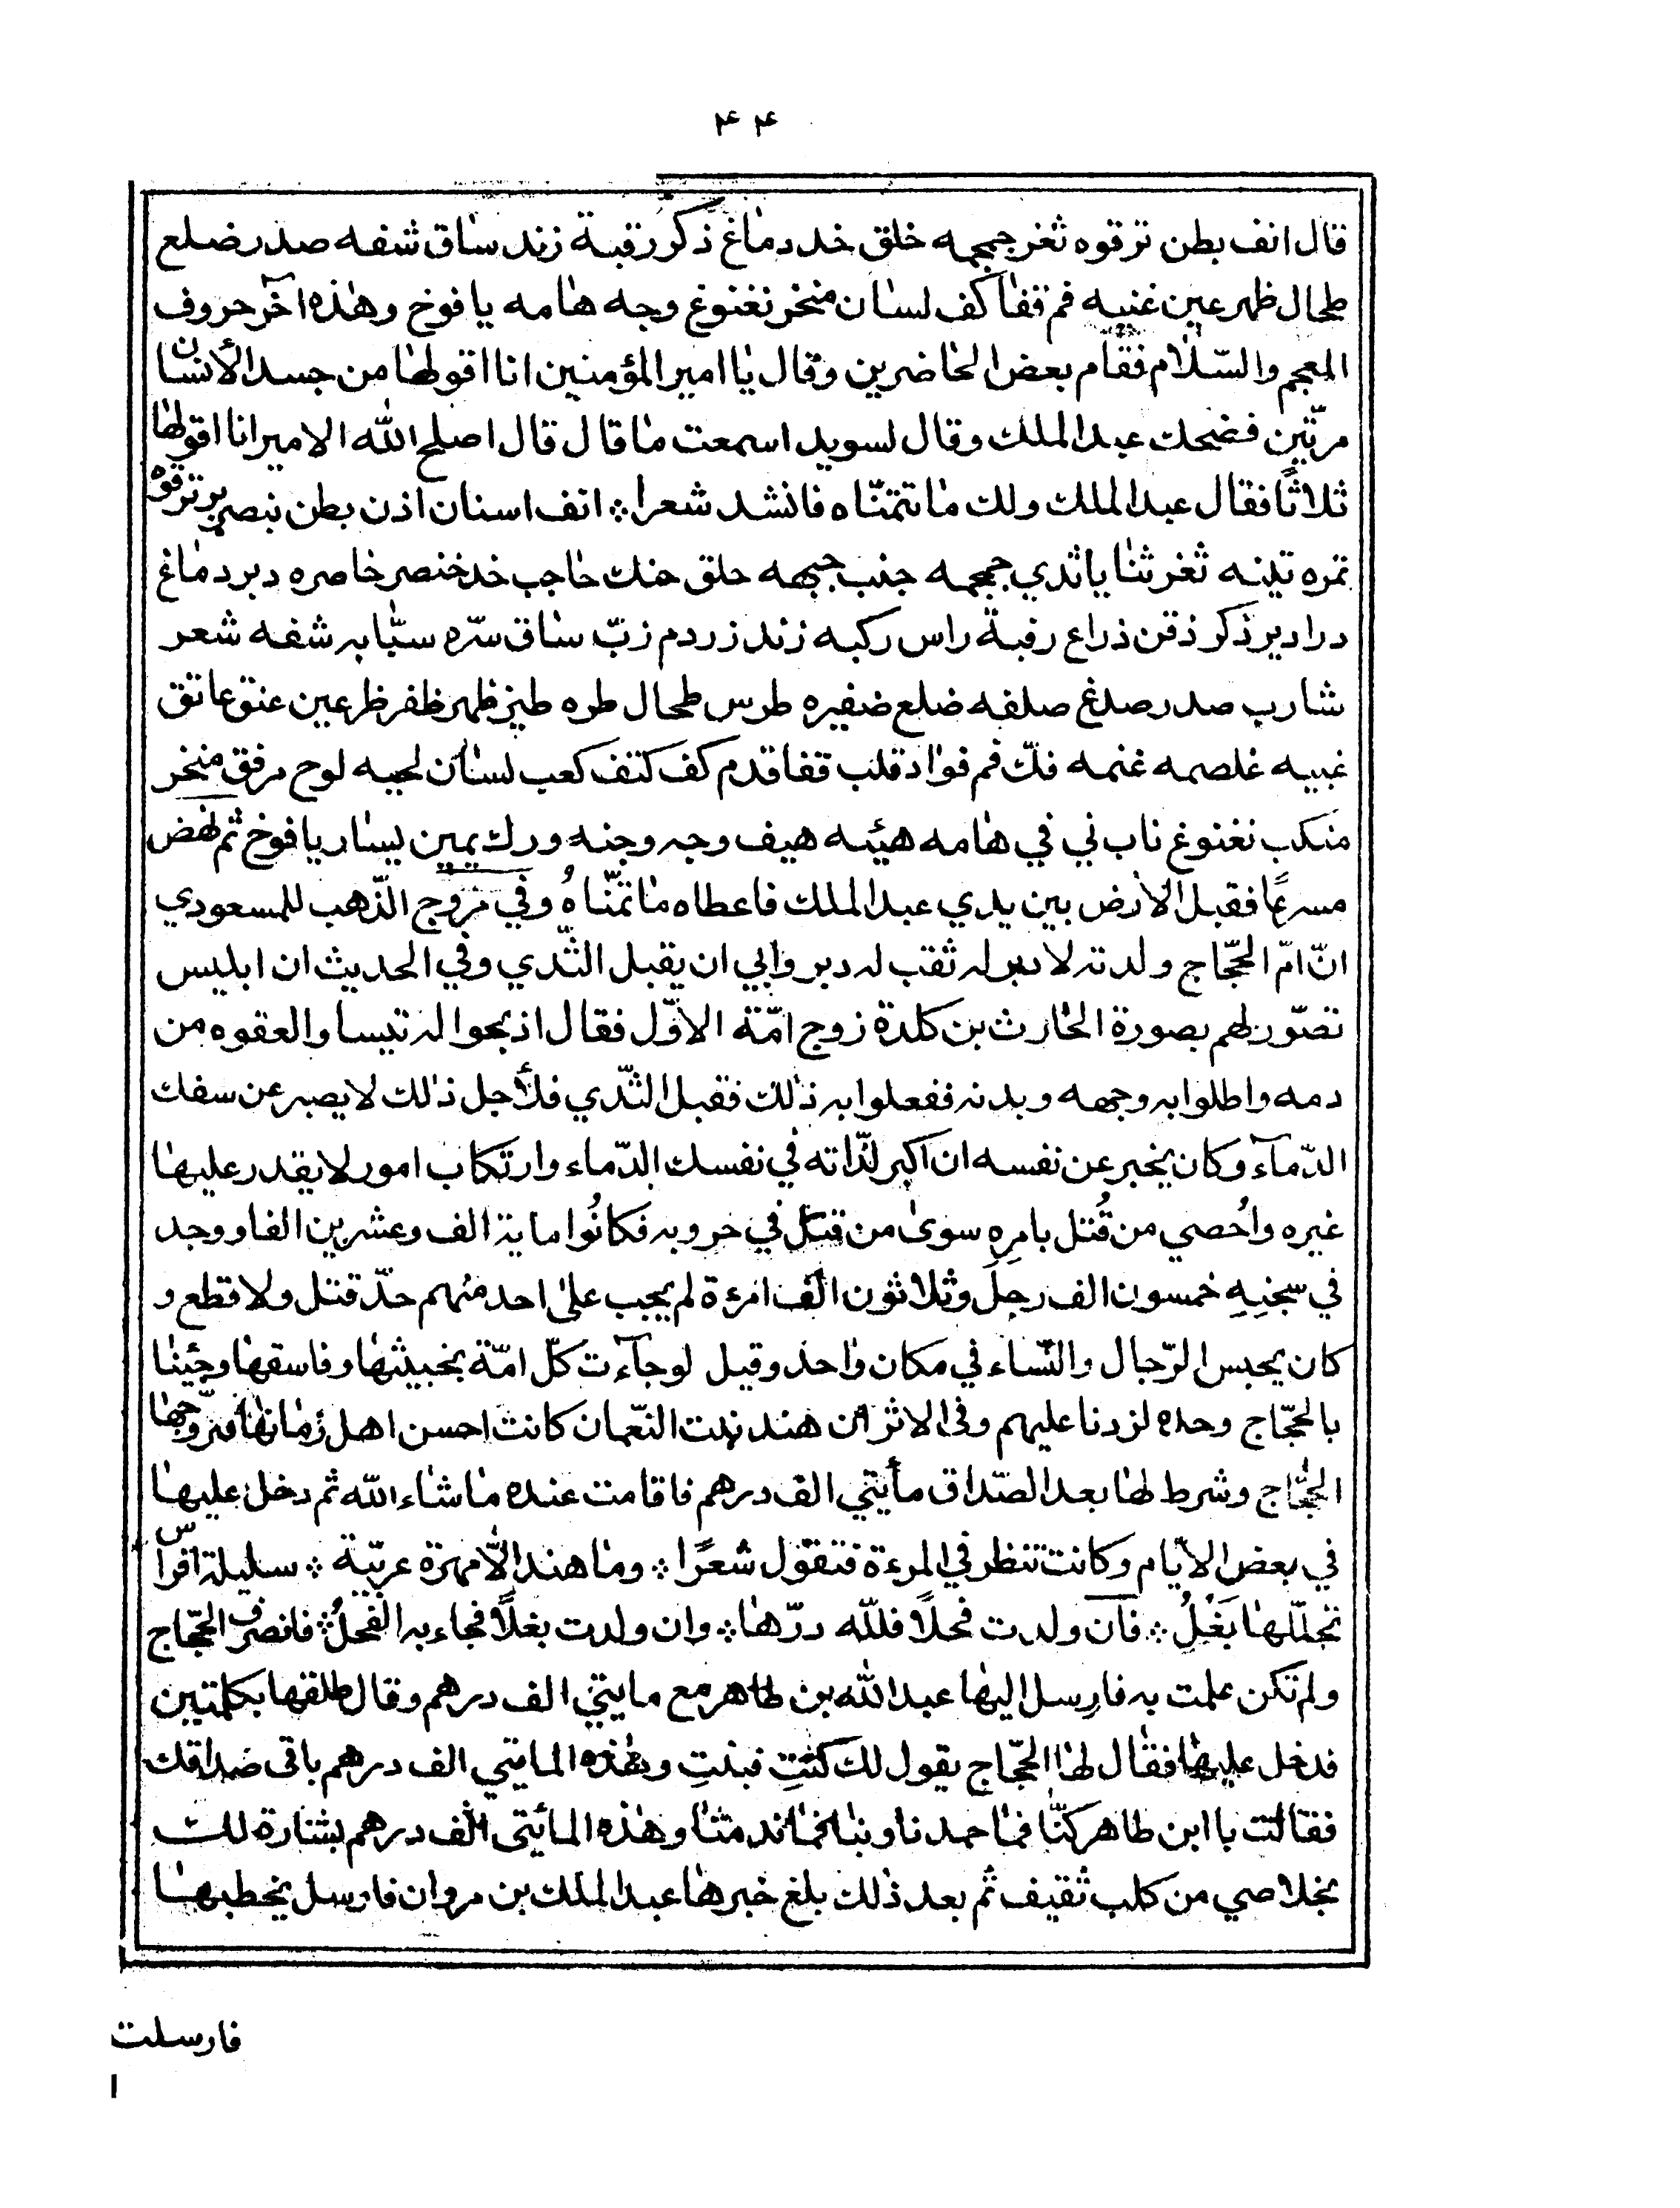 ۴۴
قال انف بطن ترقوه ثغر جمجمه خلق خد دماغ ذكر رقبة زند ساق شفه صدر ضلع
طحال ظهر عين غنبه فم قفا كف لسان منخر نغنوغ وجه هامه يافوخ وهذه اخر حروف
المعجم والسّلام فقام بعض الحاضرين وقال يا امير المؤمنين انا اقولها من جسد الأنسان
مرّتين فضحك عبد الملك وقال لسويد اسمعت ما قال قال اصلح الله الامير انا اقولها
ثلاثًا فقال عبد الملك ولك ما تتمنّاه فانشد شعرا ⁂ انف اسنان اذن بطن بنصر ترقوه
تمره تينه ثغر ثنايا ثدي جمجمه جنب جبهه حلق حنك حاجب خد خنصر خاصره دبر دماغ
درادير ذكر ذقن ذراع رقبة راس ركبه زند زردم زبّ ساق سرّه سبّابه شفه شعر
شارب صدر صدغ صلفه ضلع ضفيره طرس طحال طره طيز ظهر ظفر ظر عين عنق عاتق
غببه غلصمه غنمه فكّ فم فواد قلب قفا قدم كف كتف كعب لسان لحيه لوح مرفق منخر
منكب نغنوغ ناب ني في هامه هيئه هيف وجه وجنه ورك يمين يسار يافوخ ثم نهض
مسرعًا فقبل الارض بين يدي عبد الملك فاعطاه ما تمنّاهُ وفي مروج الذّهب للمسعودي
انّ امّ الحجّاج ولدته لا دبر له ثقب له دبر وابي ان يقبل الثّدي وفي الحديث ان ابليس
تصوّر لهم بصورة الحارث بن كلدة زوج امّه الاوّل فقال اذبحوا له تيسا والعقوه من
دمه واطلوا به وجهه وبدنه ففعلوا به ذلك فقبل الثّدي فلأجل ذلك لا يصبر عن سفك
الدّمآء وكان يخبر عن نفسه ان اكبر لذّاته في نفسك الدّماء وارتكاب امور لا يقدر عليها
غيره واُحصي من قُتل بامرِه سوى من قتل في حروبه فكانُوا ماية الف وعشرين الفا ووجد
في سجنِهِ خمسون الف رجل وثلاثون الف امرءة لم يجب على احد منهم حدّ قتل ولا قطع و
كان يحبس الرّجال والنّساء في مكان واحد وقيل لو جآءت كلّ امّة بخبيثها وفاسقها وجئنا
بالحجّاج وحده لزدنا عليهم وفى الاثر ان هند بنت النّعمان كانت احسن اهل زمانها فتزوّجها
الحجّاج وشرط لها بعد الصّداق مأيتي الف درهم فاقامت عنده ما شاء الله ثم دخل عليها
في بعض الايّام وكانت تنظر في المرءة فتقول شعرًا ⁂ وما هند الّا مهرة عربيّة ⁂ سليلة افراس
تجلّلها بَغْلُ ⁂ فان ولدت فحلًا فللّه درّها ⁂ وان ولدت بغلًا فجاء به الفحلُ ⁂ فانصرف الحجّاج
ولم تكن علمت به فارسل اليها عبد الله بن طاهر مع مايتي الف درهم وقال طلقها بكلمتين
فدخل عليها فقال لها الحجّاج يقول لك كنتِ فبنتِ وهذه المايتي الف درهم باقى صداقك
فقالت يا ابن طاهر كنّا فما حمدنا وبنا فما ندمنا وهذه المأيتى الف درهم بشارة لك
بخلاصي من كلب ثقيف ثم بعد ذلك بلغ خبرها عبد الملك بن مروان فارسل يخطبها
فارسلت
ا